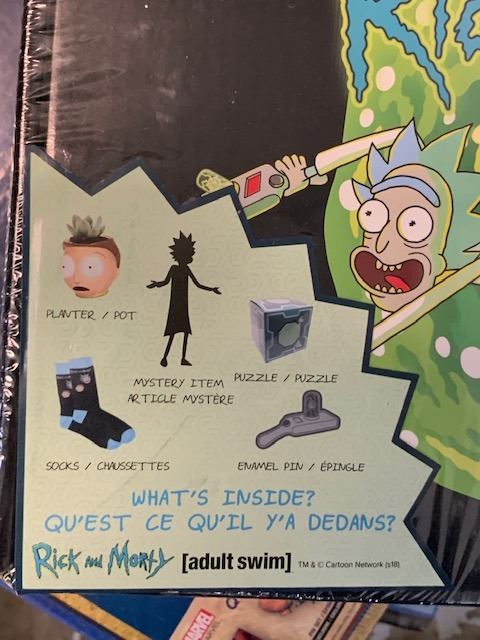 PLANTER / POT
MYSTERY ITEM
ARTICLE MYSTÈRE
PUZZLE / PUZZLE
SOCKS / CHAUSSETTES
ENAMEL PIN / ÉPINGLE
WHAT'S INSIDE?
QU'EST CE QU'IL Y'A DEDANS?
Rick and Morty [adult swim] TM & © Cartoon Network (s18)
MARVEL